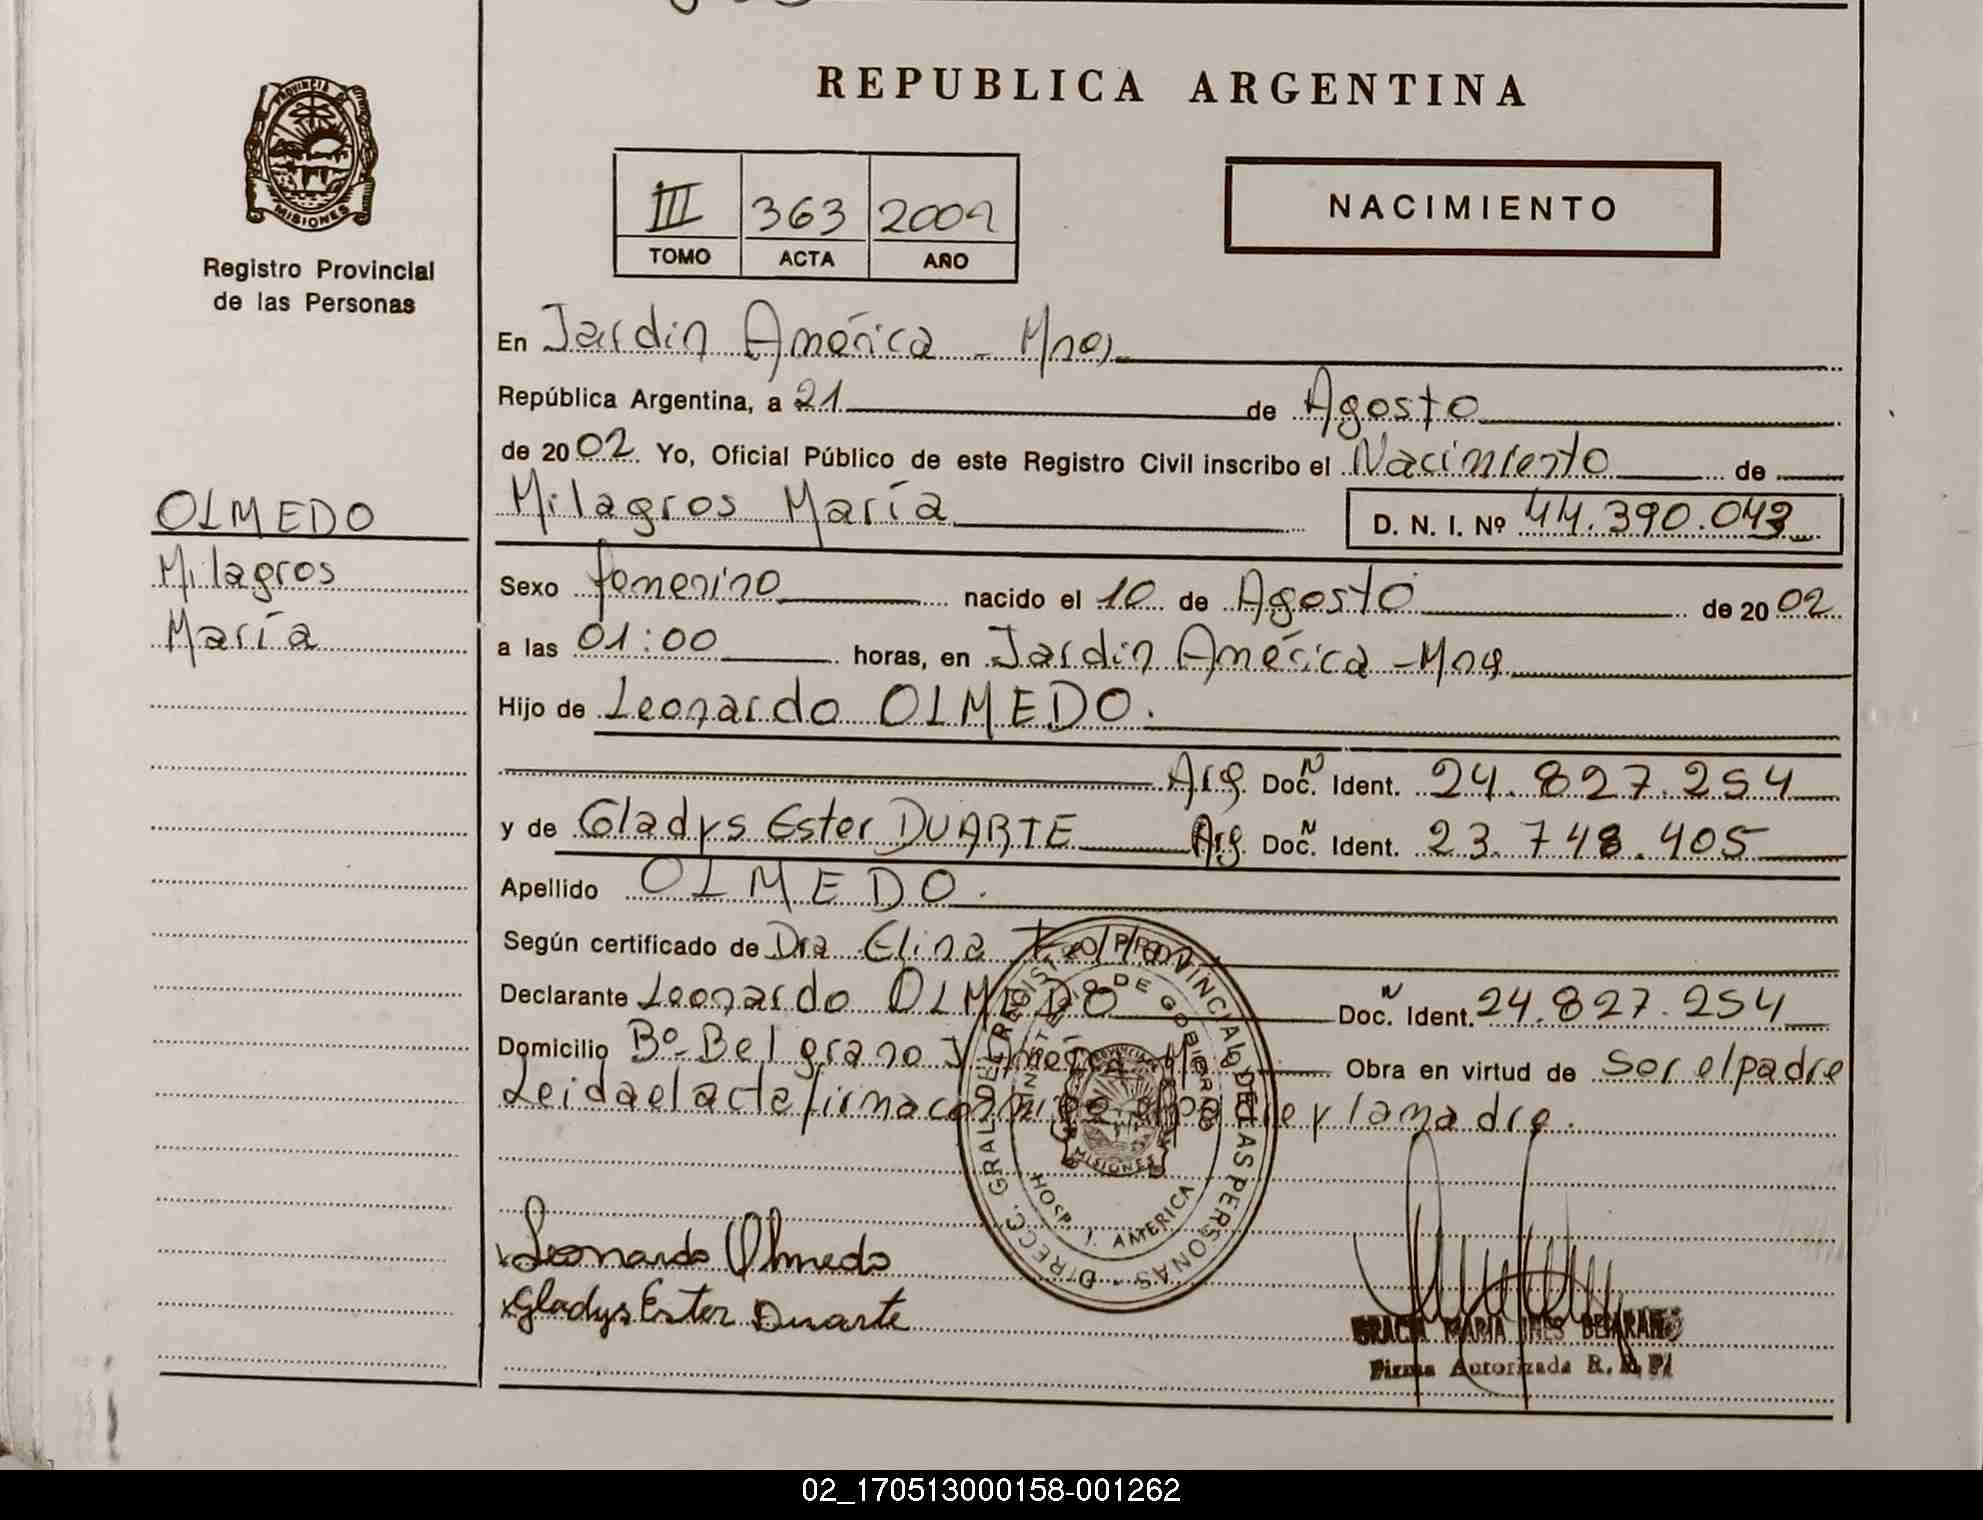 REPUBLICA ARGENTINA
PROVINCIA DE
MISIONES
Registro Provincial
de las Personas
III 363 2002
TOMO ACTA AÑO
NACIMIENTO
En Jardín América - Mnes
República Argentina, a 21 de Agosto
de 2002. Yo, Oficial Público de este Registro Civil inscribo el Nacimiento de
Milagros María D. N. I. Nº 44.390.043
OLMEDO
Milagros
María
Sexo femenino nacido el 10 de Agosto de 2002
a las 01:00 horas, en Jardín América - Mnes
Hijo de Leonardo OLMEDO.
Arg. Doc. N Ident. 24.827.254
y de Gladys Ester DUARTE Arg. Doc. N Ident. 23.748.405
Apellido OLMEDO.
Según certificado de Dra Elina
Declarante Leonardo OLMEDO Doc. N Ident. 24.827.254
Domicilio Bº Belgrano J. América Obra en virtud de ser el padre
Leida el acta firma conmigo el padre y la madre.
DIRECC. GRAL DEL REGISTRO PROVINCIAL DE LAS PERSONAS
MINISTERIO DE GOBIERNO
MISIONES
HOSP. J. AMERICA
Leonardo Olmedo
Gladys Ester Duarte
MARIA INES
Firma Autorizada R. P. P.
02_170513000158-001262